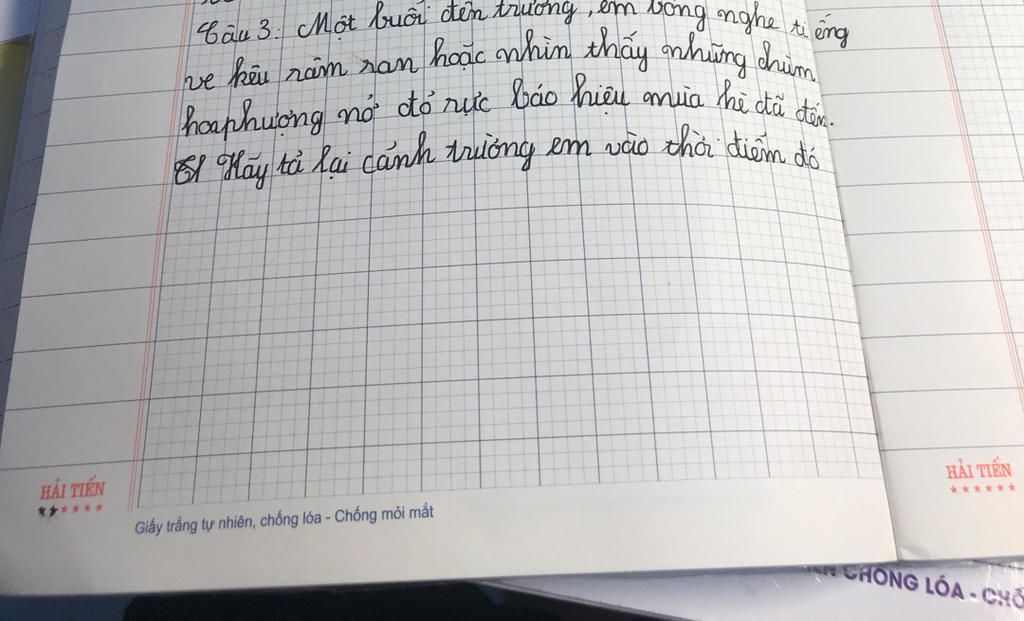 Câu 3: Một buổi đến trường, em bỗng nghe tiếng
ve kêu râm ran hoặc nhìn thấy những chùm
hoa phượng nở đỏ rực báo hiệu mùa hè đã đến.
Hãy tả lại cảnh trường em vào thời điểm đó
HẢI TIẾN
HẢI TIẾN
Giấy trắng tự nhiên, chống lóa - Chống mỏi mắt
CHỐNG LÓA - CHỐ